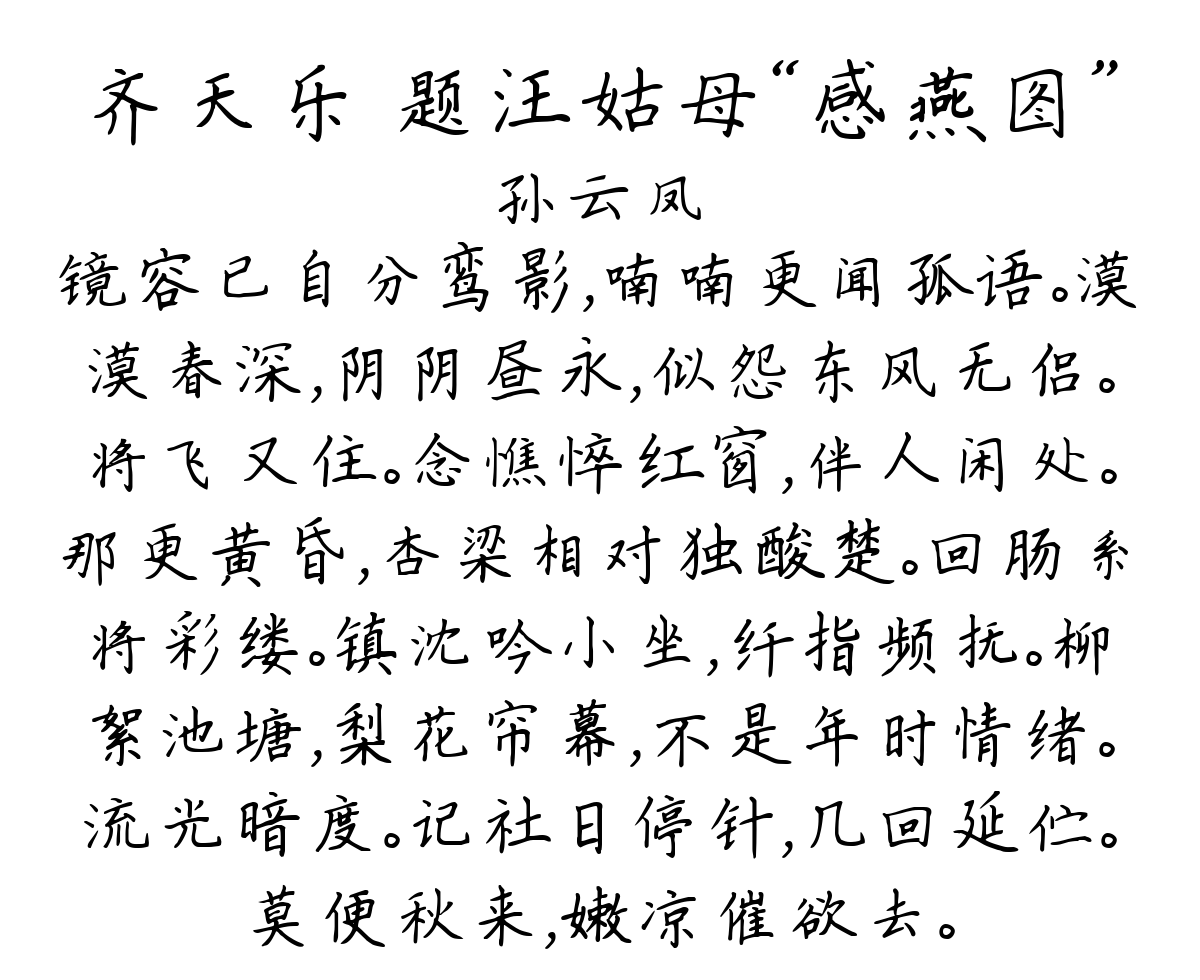 齐天乐 题汪姑母“感燕图”
孙云凤
镜容已自分鸾影,喃喃更闻孤语。漠
漠春深,阴阴昼永,似怨东风无侣。
将飞又住。念憔悴红窗,伴人闲处。
那更黄昏,杏梁相对独酸楚。回肠系
将彩缕。镇沈吟小坐,纤指频抚。柳
絮池塘,梨花帘幕,不是年时情绪。
流光暗度。记社日停针,几回延伫。
莫便秋来,嫩凉催欲去。